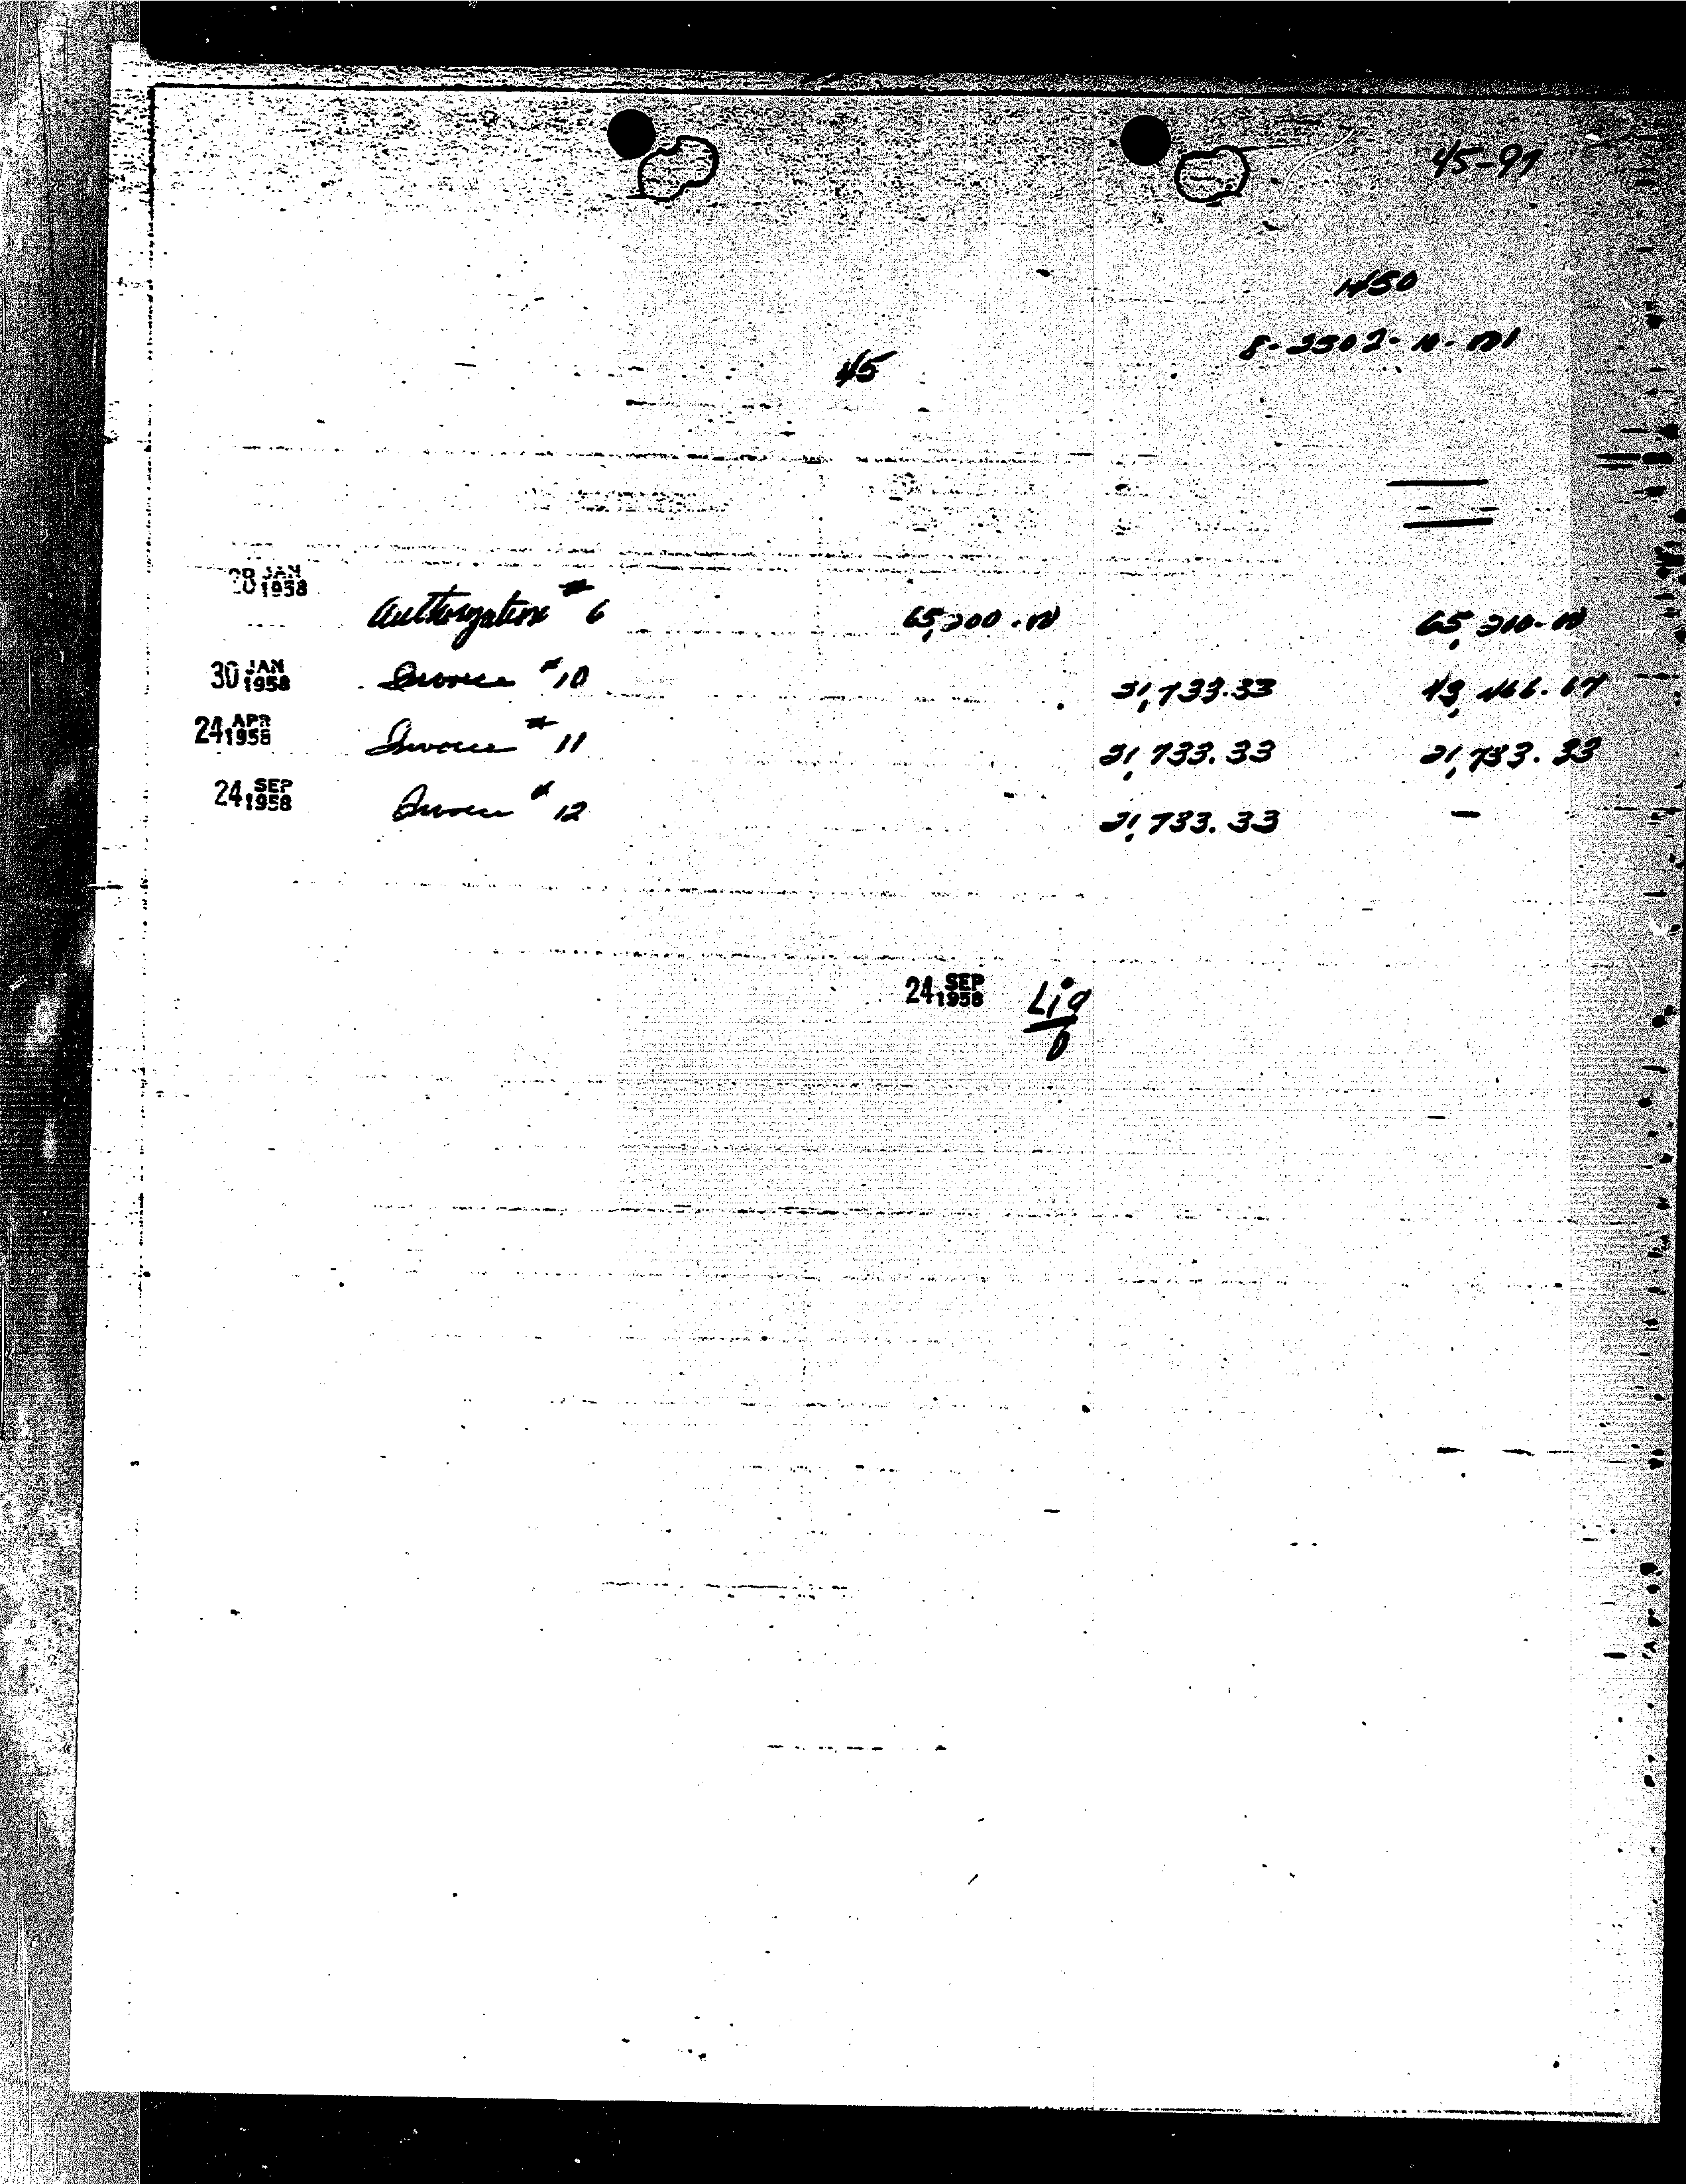 45-97
1450
8-2502-10-001
45
28 JAN 1958 Authorization # 6 65,200.00 65,200.00
30 JAN 1958 Invoice # 10 21,733.33 43,466.67
24 APR 1958 Invoice # 11 21,733.33 21,733.33
24 SEP 1958 Invoice # 12 21,733.33 —
24 SEP 1958 Liq